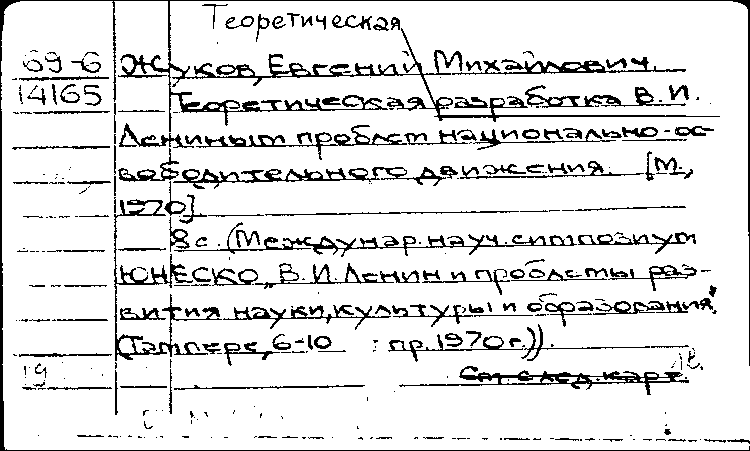 Теоретическая
69-6 Жуков, Евгений Михайлович.
14165 Теоретическая разработка В.И.
Лениным проблем национально-ос-
вободительного движения. [М.,
1970].
8 с. (Междунар. науч. симпозиум
ЮНЕСКО „В.И. Ленин и проблемы раз-
вития науки, культуры и образования"
(Тампере, 6-10 апр. 1970 г.)).
19 См след. карт.